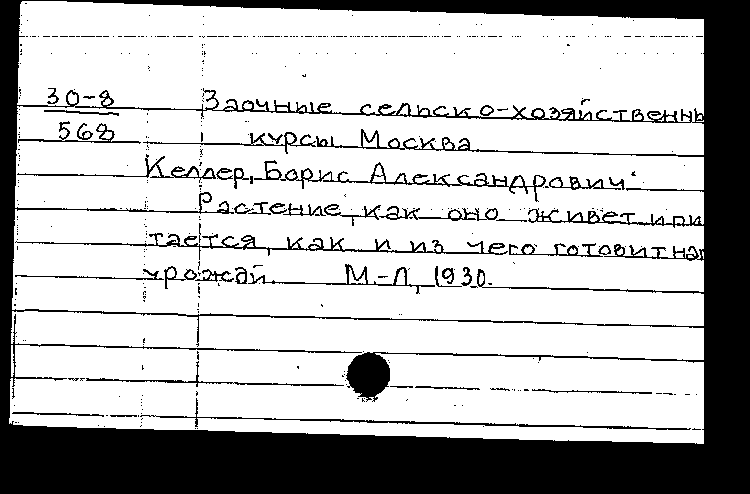 30-8
568
Заочные сельско-хозяйственны
курсы Москва.
Келлер, Борис Александрович.
Растение, как оно живет и пи
тается, как и из чего готовит на
урожай. М.-Л, 1930.